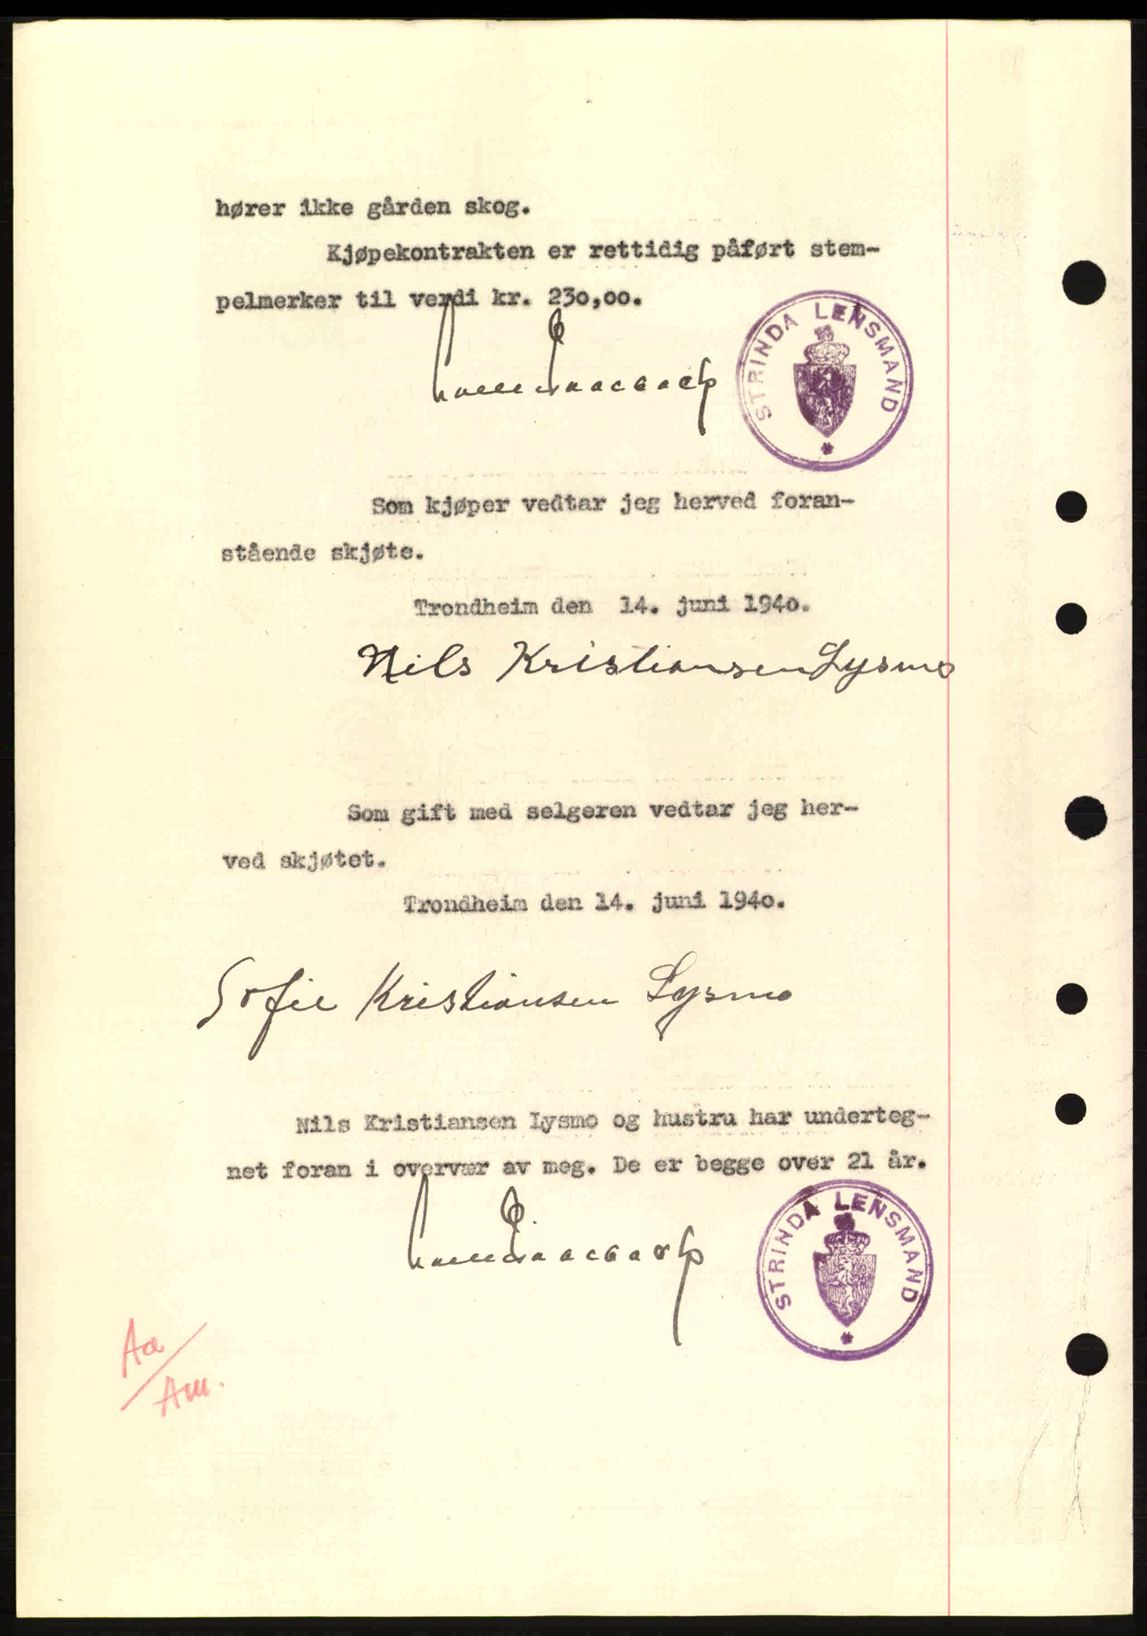 hører ikke gården skog.
Kjøpekontrakten er rettidig påført stem-
pelmerker til verdi kr. 230,00.
STRINDA LENSMAND
Som kjøper vedtar jeg herved foran-
stående skjøte.
Trondheim den 14. juni 1940.
Nils Kristiansen Lysmo
Som gift med selgeren vedtar jeg her-
ved skjøtet.
Trondheim den 14. juni 1940.
Sofie Kristiansen Lysmo
Nils Kristiansen Lysmo og hustru har underteg-
net foran i overvær av meg. De er begge over 21 år.
STRINDA LENSMAND
Aa
Am.